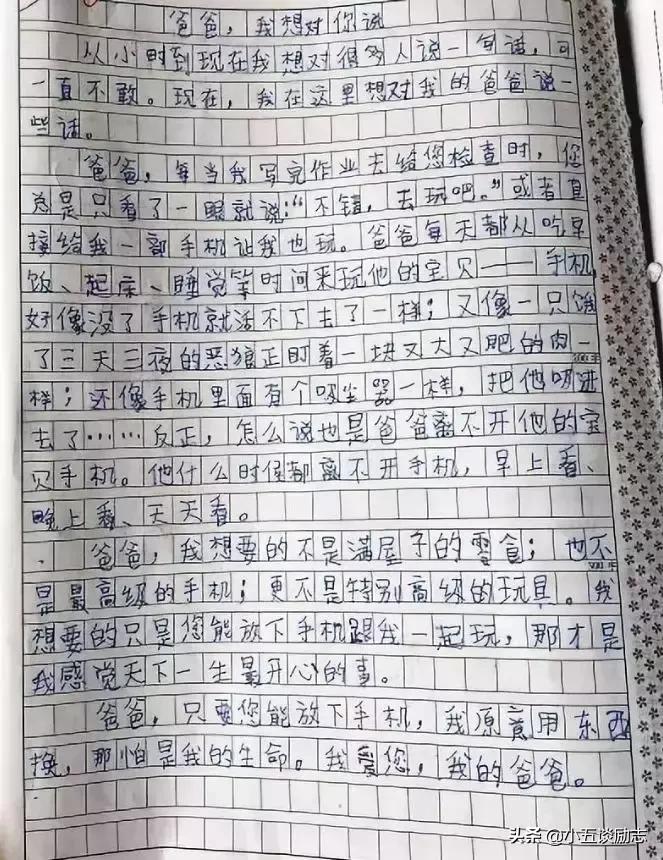 爸爸，我想对你说
从小时到现在我想对很多人说一句话，可
一直不敢。现在，我在这里想对我的爸爸说一
些话。
爸爸，每当我写完作业去给您检查时，您
总是只看了一眼就说：“不错，去玩吧。”或者直
接给我一部手机让我也玩。爸爸每天都从吃早
饭、起床、睡觉等时间来玩他的宝贝——手机
好像没了手机就活不下去了一样；又像一只饿
了三天三夜的恶狼正盯着一块又大又肥的肉一
样；还像手机里面有个吸尘器一样，把他吸进
去了……反正，怎么说也是爸爸离不开他的宝
贝手机。他什么时候都离不开手机，早上看、
晚上看、天天看。
爸爸，我想要的不是满屋子的零食；也不
是最高级的手机；更不是特别高级的玩具。我
想要的只是您能放下手机跟我一起玩，那才是
我感觉天下一生最开心的事。
爸爸，只要您能放下手机，我原意用东西
换，那怕是我的生命。我爱您，我的爸爸。
头条 @小五谈励志